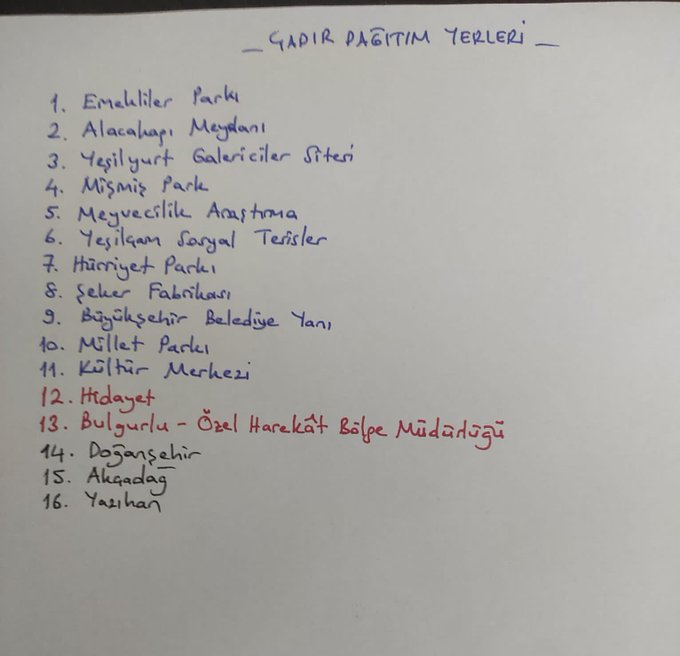 _ ÇADIR DAĞITIM YERLERİ _
1. Emekliler Parkı
2. Alacakapı Meydanı
3. Yeşilyurt Galericiler Sitesi
4. Mişmiş Park
5. Meyvecilik Araştırma
6. Yeşilçam Sosyal Tesisler
7. Hürriyet Parkı
8. Şeker Fabrikası
9. Büyükşehir Belediye Yanı
10. Millet Parkı
11. Kültür Merkezi
12. Hidayet
13. Bulgurlu - Özel Harekât Bölge Müdürlüğü
14. Doğanşehir
15. Akçadağ
16. Yazıhan